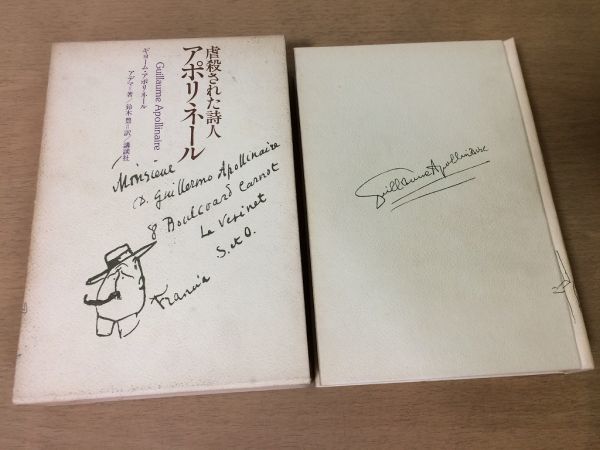 虐殺された詩人
アポリネール
Guillaume Apollinaire
ギヨーム・アポリネール
アデマ=著/鈴木豊=訳/講談社
Monsieur
D. Guillermo Apollinaire
8 Boulevard Carnot
Le Vesinet
S. et O.
Francia
Guillaume Apollinaire